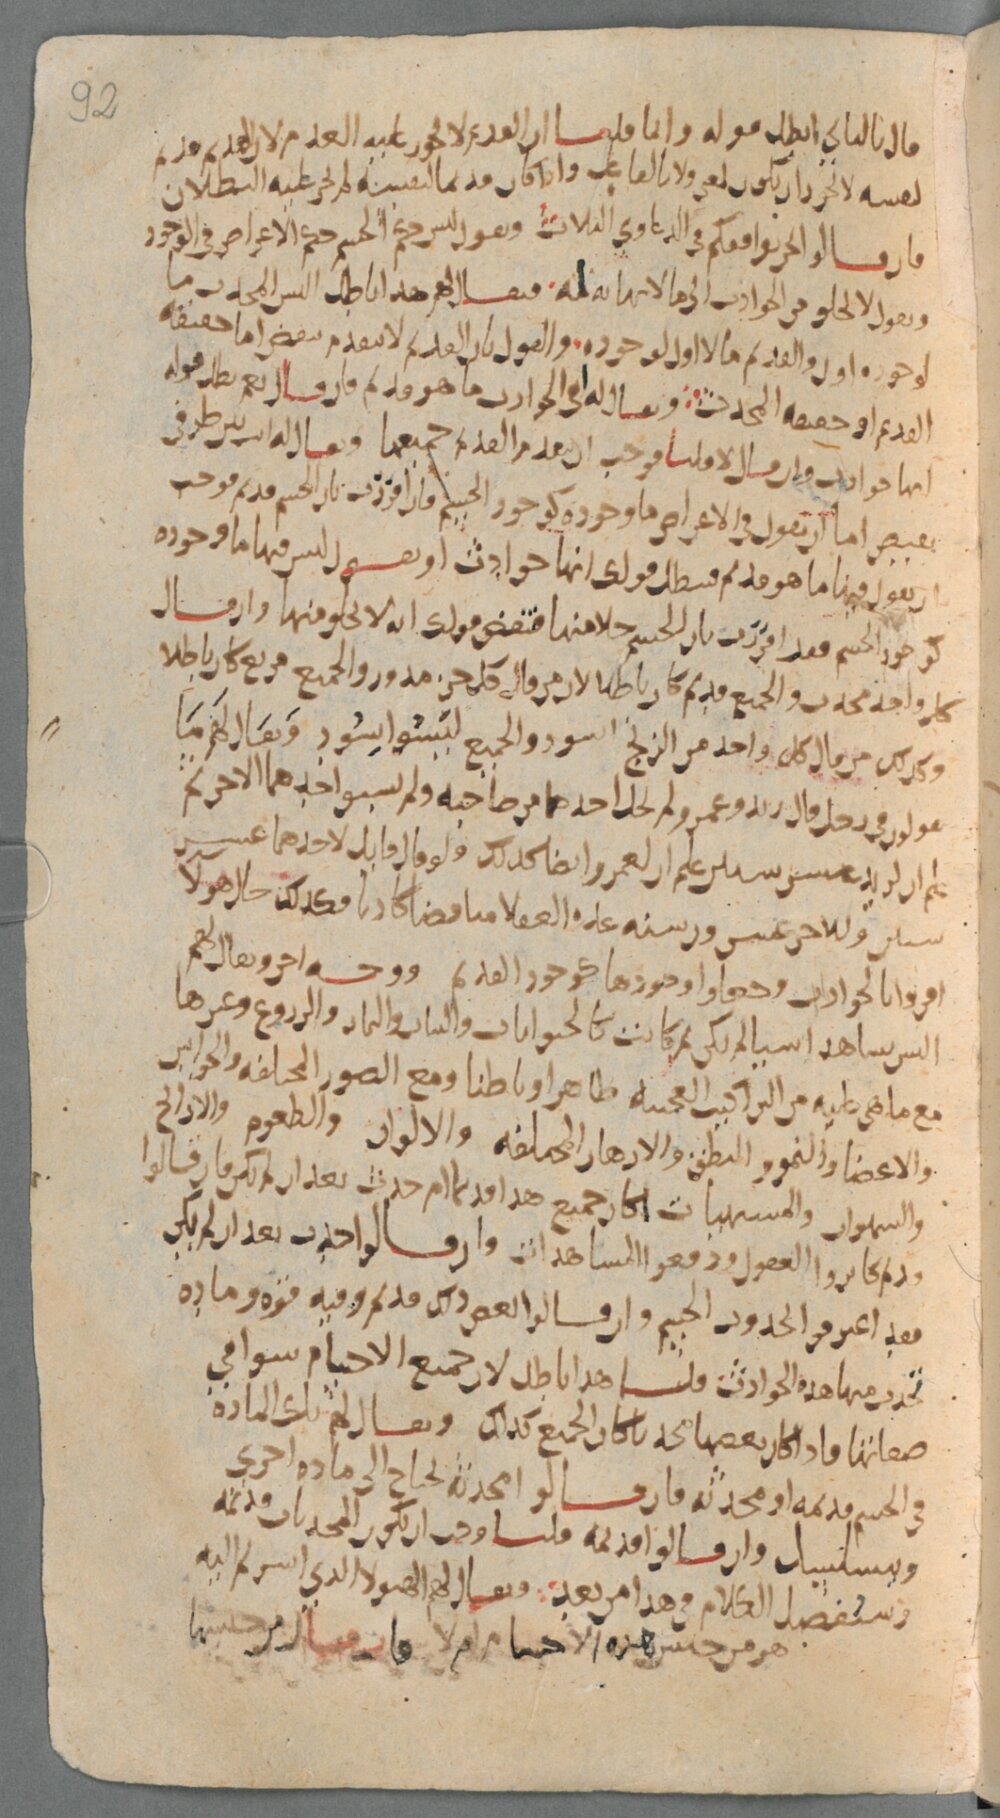 92
قال بالثاني ابطل قوله وانما قلنا ان القديم لا يجوز عليه العدم لان القديم قديم
لنفسه لا يجوز ان يكون لمعنى ولا بالفاعل واذا كان قديما لنفسه لم يجز عليه البطلان
فان قالوا نحن نوافقكم في الدعاوي الثلاث ونقول ليس حكم الجسم حكم الاعراض في الوجود
ونقول لا يخلو من الحوادث الى ما لا نهاية له فيقال لهم هذا باطل اليس المحدث ما
لوجوده اول والقديم ما لا اول لوجوده والقول بان القديم لا يتقدم ينقض اما حقيقة
القديم او حقيقة المحدث ويقال له افي الحوادث ما هو قديم فان قال نعم بطل قوله
انها حوادث وان قال لا قلنا فوجب ان يتقدم القديم جميعها ويقال له انت بين طرفي
نقيض اما ان يقول في الاعراض ما وجوده كوجود الجسم فان اقررت بان الجسم قديم فوجب
ان يقول فيها ما هو قديم فيبطل قولك انها حوادث او يقول ليس فيها ما وجوده
كوجود الجسم فقد اقررت بان الجسم خلا منها فنقض قولك انه لا يخلو منها وان قال
كل واحد محدث والجميع قديم كان باطلا لان من قال كل جزء مدور والجميع مربع كان باطلا
وكذلك من قال كل واحد من الزنج اسود والجميع ليسوا بسود ويقال لهم ما
يقولون في رجل قال زيد وعمرو لم يخل احدهما من صاحبه ولم يسبق احدهما الاخر ثم
علم ان لزيد عشر سنين علم ان لعمرو ايضا كذلك ولو قال قايل لاحدهما عشر
سنين وللاخر عشرون سنة عده العقلا مناقضا كاذبا فكذلك حال هولا
اقروا بالحوادث وجعلوا وجودها كوجود القديم ووجه اخر ويقال لهم
اليس نشاهد اشيا لم يكن ثم كانت كالحيوانات والنبات والثمار والزروع وغيرها
مع ما هي عليه من التراكيب العجيبة ظاهرا وباطنا ومع الصور المختلفة والحواس
والاعضا والنمو والنطق والازهار المختلفة والالوان والطعوم والارايح
والشهوات والمشتهيات اكان جميع هذا قديما ام حدث بعد ان لم يكن فان قالوا
قديم كابروا العقول ودفعوا المشاهدات وان قالوا حدث بعد ان لم يكن
فقد اعترفوا بحدوث الجسم وان قالوا بعض ذلك قديم وفيه قوة ومادة
تحدث منها هذه الحوادث قلنا هذا باطل لان جميع الاجسام سوا في
صفاتها فاذا كان بعضها محدثا كان الجميع كذلك ويقال لهم تلك المادة
في الجسم قديمة او محدثة فان قالوا محدثة يحتاج الى مادة اخرى
ويتسلسل وان قالوا قديمة قلنا وجب ان يكون المحدثات قديمة
وسنفصل الكلام في هذا من بعد ويقال لهم الهيولا الذي اشرتم اليه
هو من جنس هذه الاجسام ام لا فان قال من جنسها